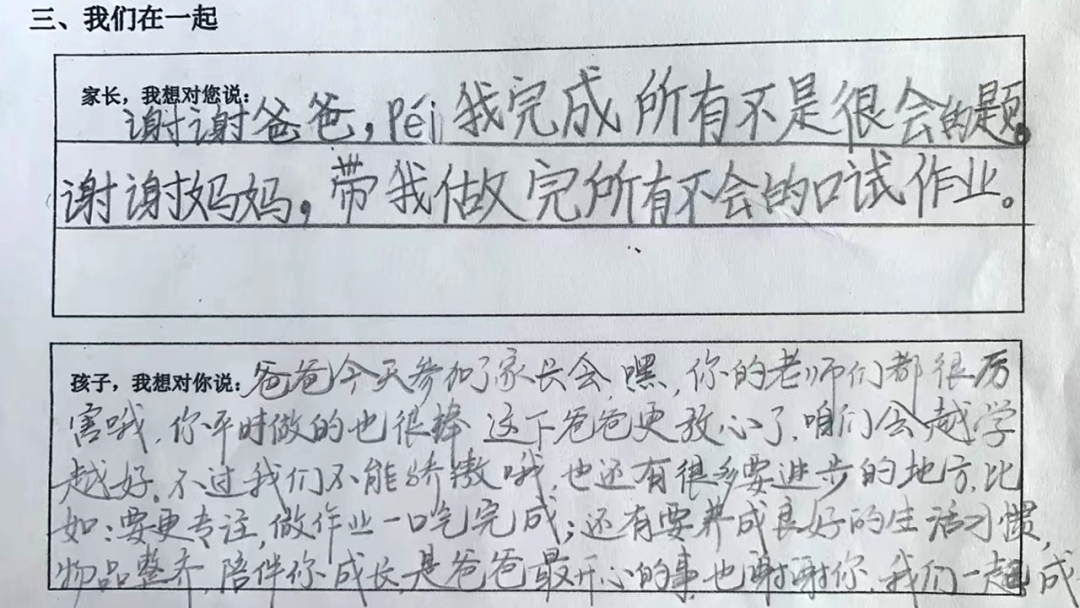 三、我们在一起
家长，我想对您说：
谢谢爸爸，péi我完成所有不是很会的题。
谢谢妈妈，带我做完所有不会的口试作业。
孩子，我想对你说：爸爸今天参加了家长会，嘿，你的老师们都很厉
害哦，你平时做的也很棒，这下爸爸更放心了，咱们会越学
越好。不过我们不能骄傲哦，也还有很多要进步的地方，比
如：要更专注，做作业一口气完成；还有要养成良好的生活习惯，
物品整齐，陪伴你成长，是爸爸最开心的事，也谢谢你，我们一起成